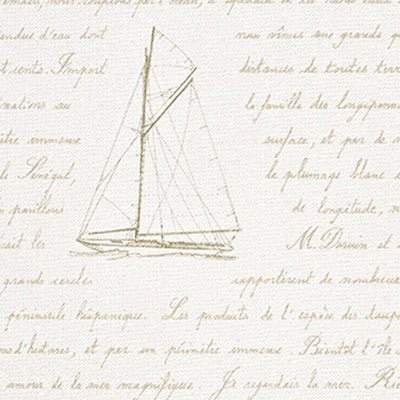 nous coupions par l'océan, à
tendue d'eau dont nous vîmes une grande
vents. Import distances de toutes terr
inations au la famille des longipenne
immense surface, et par de
le Sénégal, le plumage blanc
pavillons de longitude,
ait les M. Darwin et
grands cercles rapportèrent de nombreuse
péninsule hispanique. Les produits de l'espèce des
d'histoires, et par un périmètre immense. Bientôt l'île
amour de la mer magnifique. Je regardais la mer. Rien